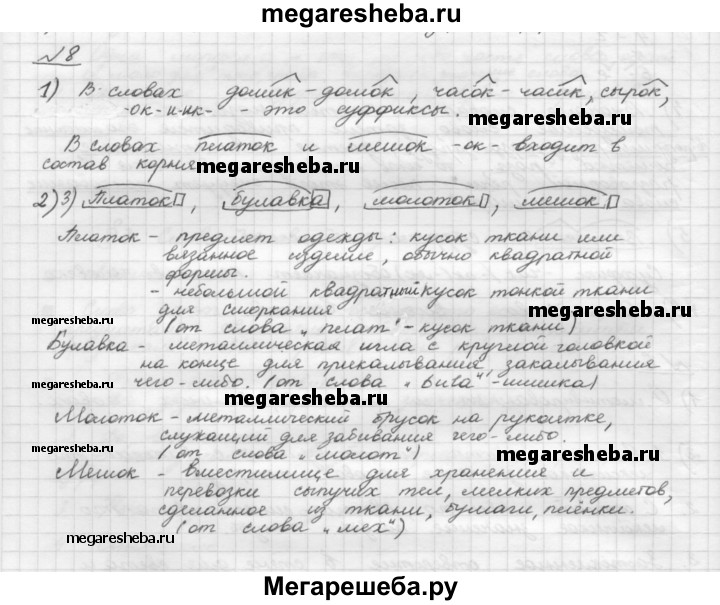 megaresheba.ru
№8
1) В словах домик - домок, часок - часик, сырок,
-ок- и -ик- - это суффиксы.
megaresheba.ru
В словах платок и мешок -ок- входит в
состав корня
megaresheba.ru
2) 3) Платок, булавка, молоток, мешок
Платок - предмет одежды: кусок ткани или
вязанное изделие, обычно квадратной
формы.
- небольшой квадратный кусок тонкой ткани
megaresheba.ru
для сморкания
megaresheba.ru
(от слова "плат" - кусок ткани)
Булавка - металлическая игла с круглой головкой
на конце для прикалывания, закалывания
megaresheba.ru
чего-либо. (от слова "buła" - шишка)
megaresheba.ru
Молоток - металлический брусок на рукоятке,
служащий для забивания чего-либо.
megaresheba.ru
(от слова "молот")
megaresheba.ru
Мешок - вместилище для хранения и
перевозки сыпучих тел, мелких предметов,
сделанное из ткани, бумаги, плёнки.
(от слова "мех")
megaresheba.ru
Мегарешеба.ру